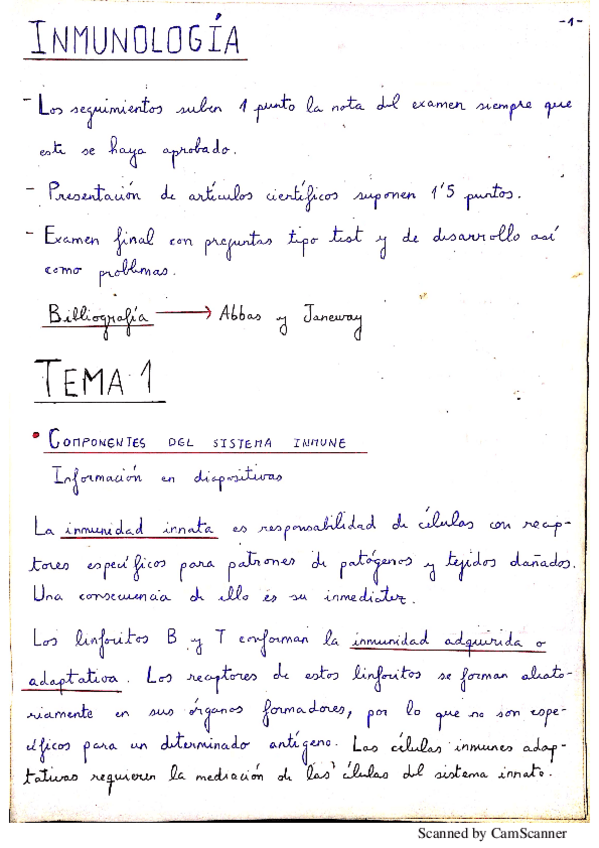 -1-
INMUNOLOGÍA
- Los seguimientos suben 1 punto la nota del examen siempre que
este se haya aprobado.
- Presentación de artículos científicos suponen 1'5 puntos.
- Examen final con preguntas tipo test y de desarrollo así
como problemas.
Bibliografía → Abbas y Janeway
TEMA 1
• COMPONENTES DEL SISTEMA INMUNE
Información en diapositivas
La inmunidad innata es responsabilidad de células con recep-
tores específicos para patrones de patógenos y tejidos dañados.
Una consecuencia de ello es su inmediatez.
Los linfocitos B y T conforman la inmunidad adquirida o
adaptativa. Los receptores de estos linfocitos se forman aleato-
riamente en sus órganos formadores, por lo que no son espe-
cíficos para un determinado antígeno. Las células inmunes adap-
tativas requieren la mediación de las células del sistema innato.
Scanned by CamScanner